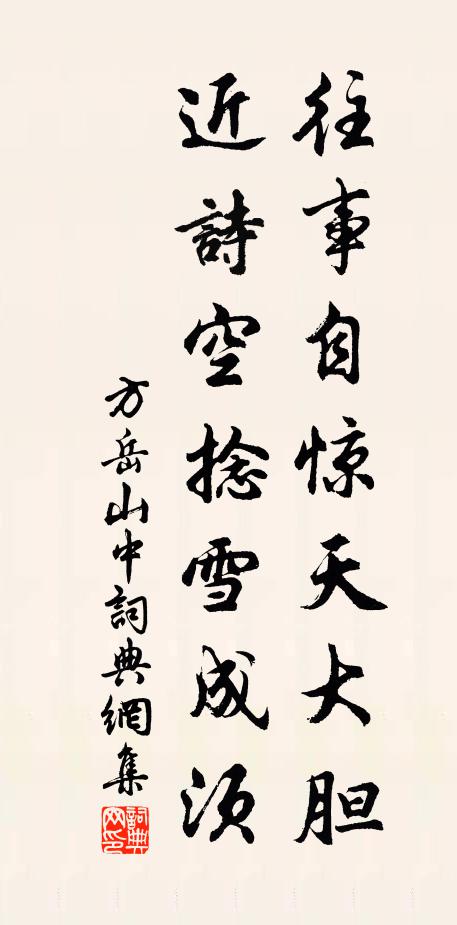 往事自惊天大胆
近詩空捻雪成须
方岳山中詞典網集
詞典网印